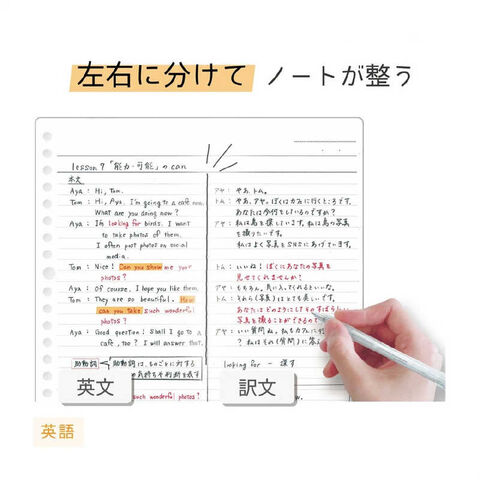 左右に分けて ノートが整う
lesson 9 「能力・可能」の can
本文
Aya : Hi, Tom.
Tom : Hi, Aya. I'm going to a cafe now.
What are you doing now?
Aya : I'm looking for birds. I want
to take photos of them.
I often post photos on social
media.
Tom : Nice! Can you show me your
photos?
Aya : Of course. I hope you like them.
Tom : They are so beautiful. How
can you take such wonderful
photos?
Aya : Good question! Shall I go to a
cafe, too? I will answer that.
助動詞 助動詞は、ものごとに対する
の気持ちや判断を表す
such wonderful photos?
アヤ : やあ、トム。
トム : やあ、アヤ。ぼくはカフェに行くところです。
あなたは今何をしているのですか?
アヤ : 私は鳥を探しています。私は鳥の写真
を撮りたいです。
私はよく写真をSNSにあげています。
トム : いいね! ぼくにあなたの写真を
見せてくれませんか?
アヤ : もちろん。気に入ってくれるといいな。
トム : それら(写真)はとても美しいです。
あなたはどのようにしてそのすばらしい
写真を撮ることができるの
アヤ : いい質問ね。私もカフェに行
? 私はその(質問)に答
looking for − 探す
英文
訳文
英語